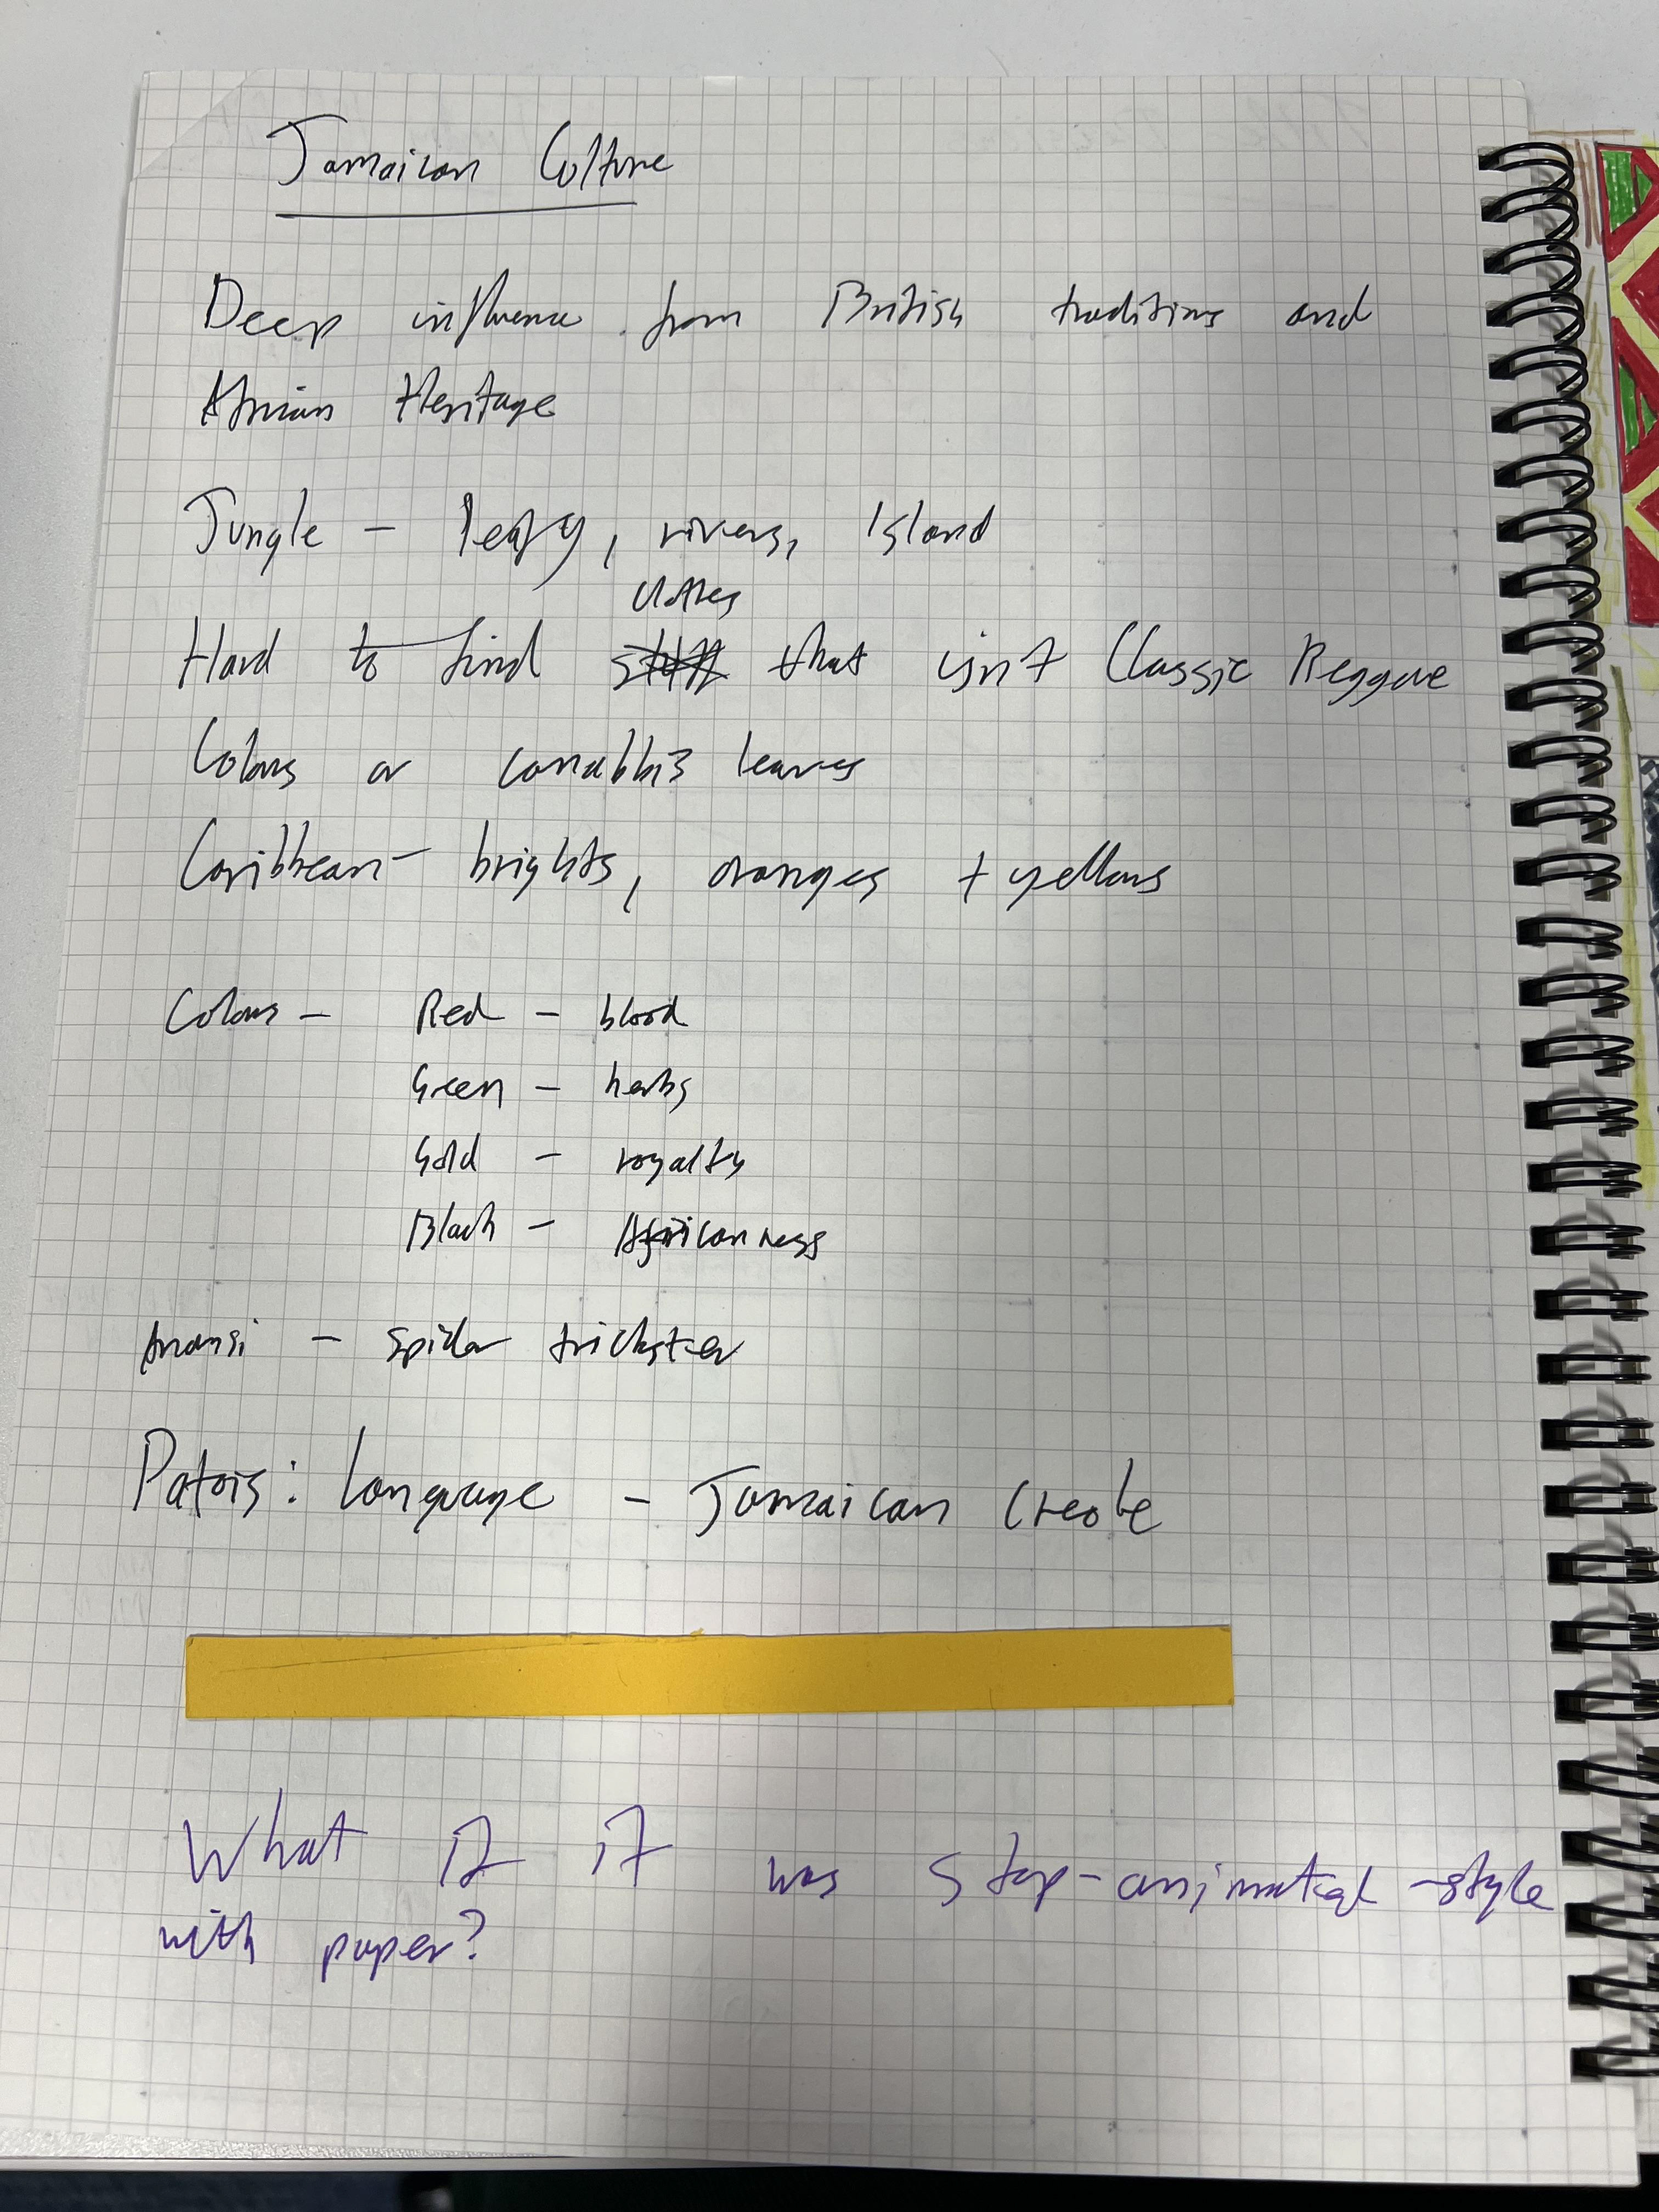 Jamaican Culture
Deep influence from British traditions and
African Heritage
Jungle - leafy, rivers, Island
clothes
Hard to find stuff that isn't Classic Reggae
Colours or cannabbis leaves
Caribbean - brights, oranges + yellows
Colours - Red - blood
Green - herbs
Gold - royalty
Black - Africanness
Anansi - spider trickster
Patois: Language - Jamaican Creole
What if it was stop-animated-style
with paper?